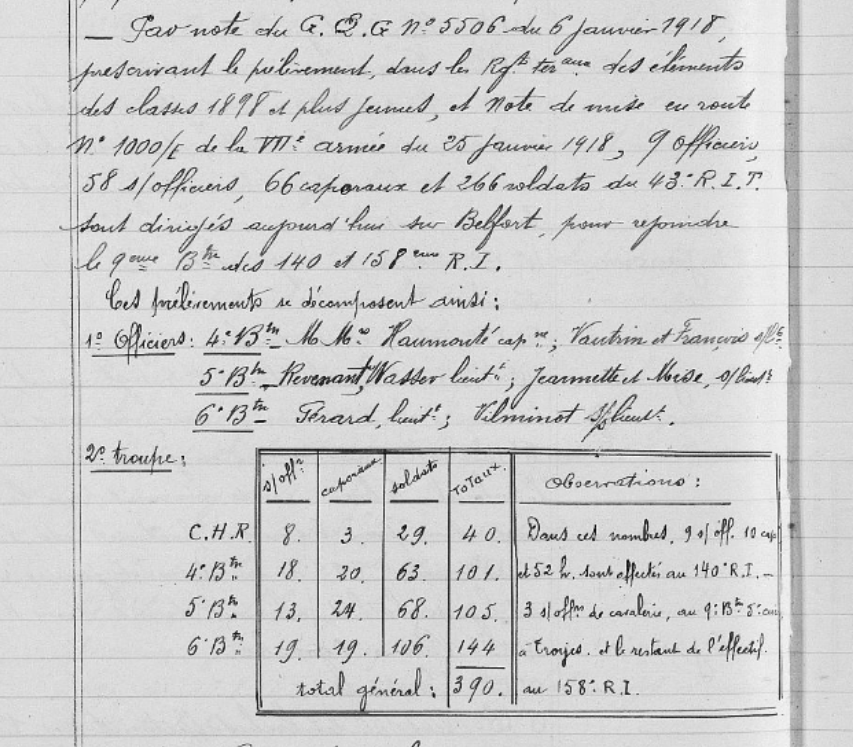 — Par note du G. Q. G N° 5506 du 6 Janvier 1918,
prescrivant le prélèvement, dans les Rgts teraux des éléments
des classes 1898 et plus jeunes, et Note de mise en route
N° 1000/E de la VIIe armée du 25 janvier 1918, 9 officiers,
58 s/officiers, 66 caporaux et 266 soldats du 43e R.I.T.
sont dirigés aujourd'hui sur Belfort, pour rejoindre
le 9eme Bon des 140 et 158eme R.I.
Ces prélèvements se décomposent ainsi :
1° Officiers : 4e Bon MMrs Haumonté capne ; Vautrin et François s/lts
5e Bon Revenant, Wasser lieutt ; Jeannette et Mise, s/lieutt
6e Bon Férard, lieutt ; Vilminot s/lieutt.
2° troupe :
s/offrs caporaux soldats Totaux. Observations :
C.H.R. 8. 3. 29. 40. Dans ces nombres, 9 s/off. 10 cap
4e Bon 18. 20. 63. 101. et 52 h. sont affectés au 140e R.I. —
5e Bon 13. 24. 68. 105. 3 s/offrs de cavalerie, au 9e Bon 5e
6e Bon 19. 19. 106. 144 à Troyes. et le restant de l'effectif.
total général : 390. au 158e R.I.